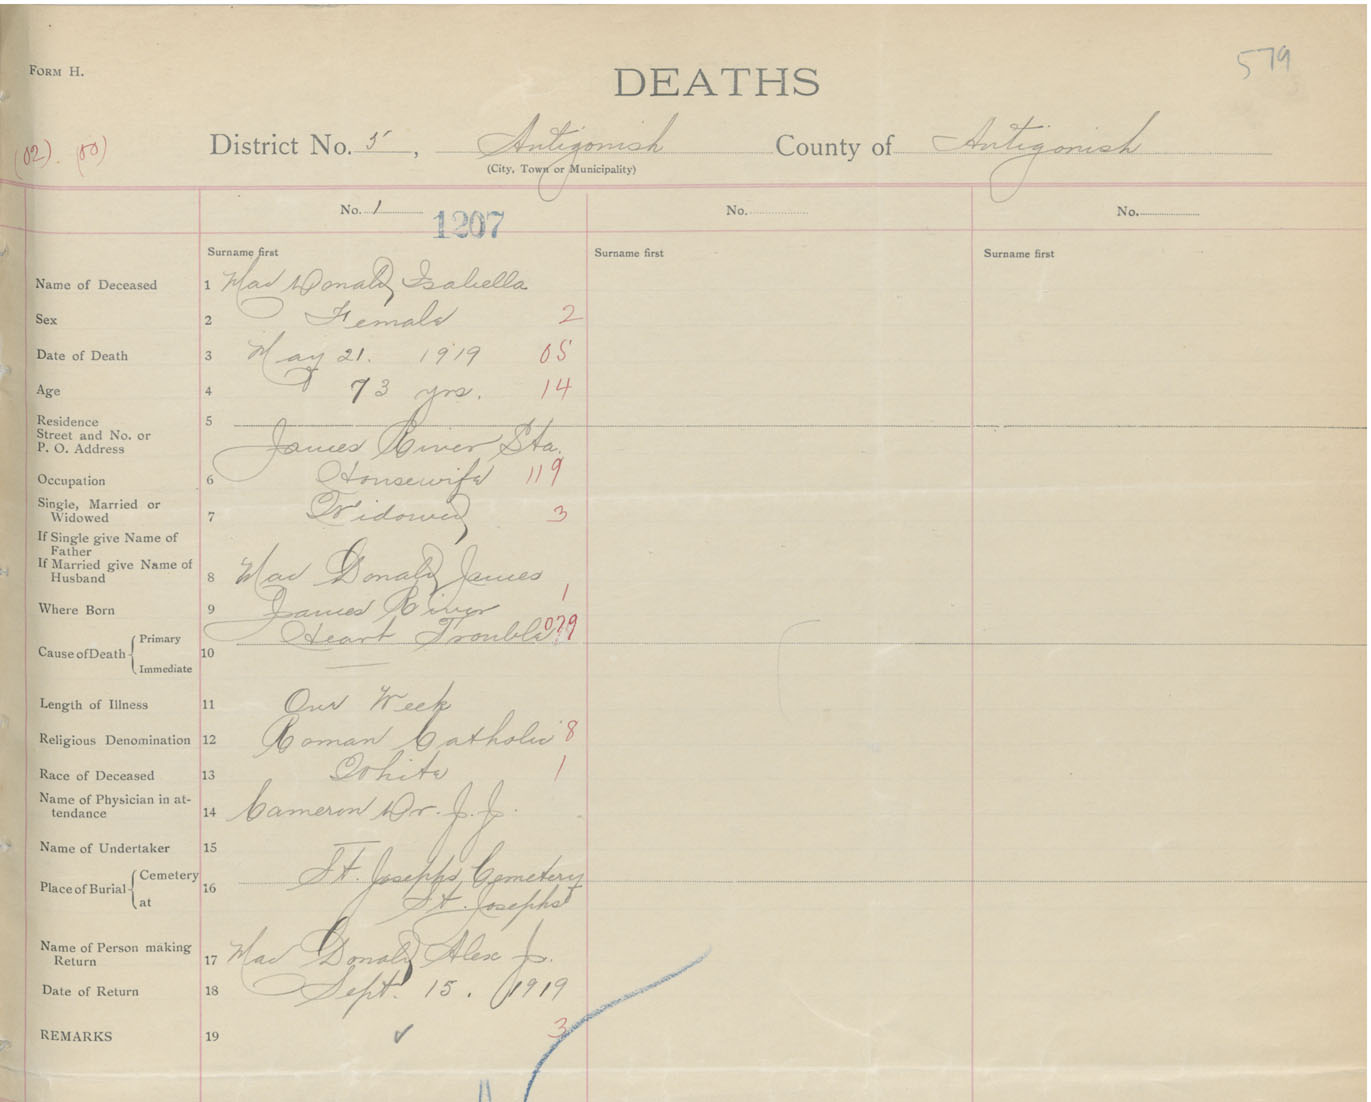 579
FORM H.
DEATHS
(02). (50)
District No. 5, Antigonish County of Antigonish
(City, Town or Municipality)
No. 1 No. No.
1207
Surname first Surname first Surname first
Name of Deceased 1 Mac Donald, Isabella
Sex 2 Female 2
Date of Death 3 May 21. 1919 05
Age 4 73 yrs. 14
Residence 5
Street and No. or
P. O. Address James River Sta.
Occupation 6 Housewife 119
Single, Married or
Widowed 7 Widowed 3
If Single give Name of
Father
If Married give Name of
Husband 8 Mac Donald, James
1
Where Born 9 James River
Cause of Death Primary Heart Trouble 079
10
Immediate —
Length of Illness 11 One Week
Religious Denomination 12 Roman Catholic 8
Race of Deceased 13 White 1
Name of Physician in at-
tendance 14 Cameron Dr. J. J.
Name of Undertaker 15 —
Place of Burial Cemetery 16 St. Josephs Cemetery
at St. Josephs
Name of Person making
Return 17 Mac Donald, Alex J.
Date of Return 18 Sept. 15. 1919
REMARKS 19 ✓ 3